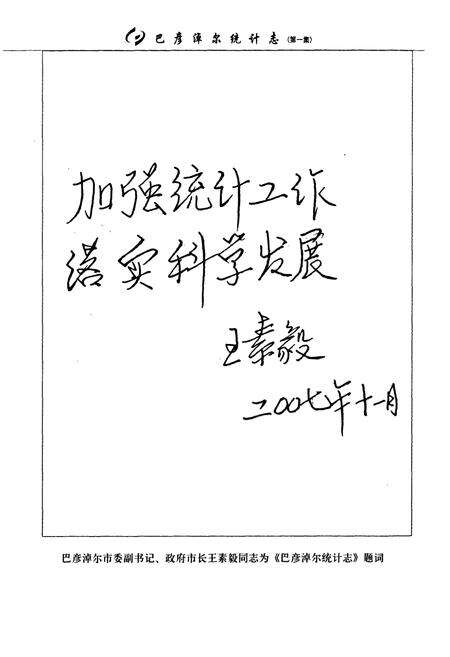 巴彦淖尔统计志 (第一集)
加强统计工作
落实科学发展
王素毅
二〇〇七年十一月
巴彦淖尔市委副书记、政府市长王素毅同志为《巴彦淖尔统计志》题词